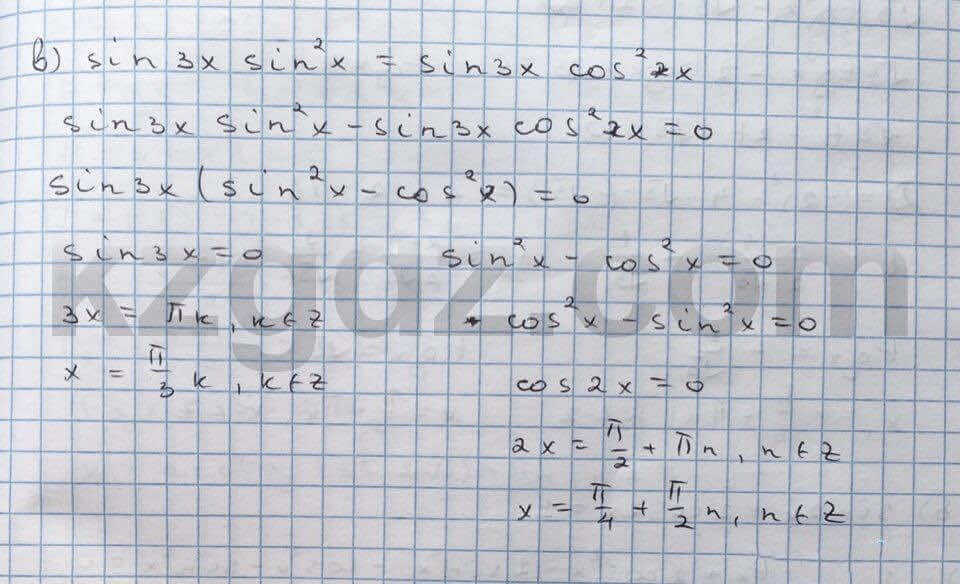 в) sin 3x sin²x = sin3x cos²x
sin3x sin²x - sin3x cos²x = 0
sin3x (sin²x - cos²x) = 0
sin3x = 0 sin²x - cos²x = 0
3x = πk, k∈Z - cos²x - sin²x = 0
x = π/3 k, k∈Z cos2x = 0
2x = π/2 + πn, n∈Z
x = π/4 + π/2 n, n∈Z
kzgdz.com